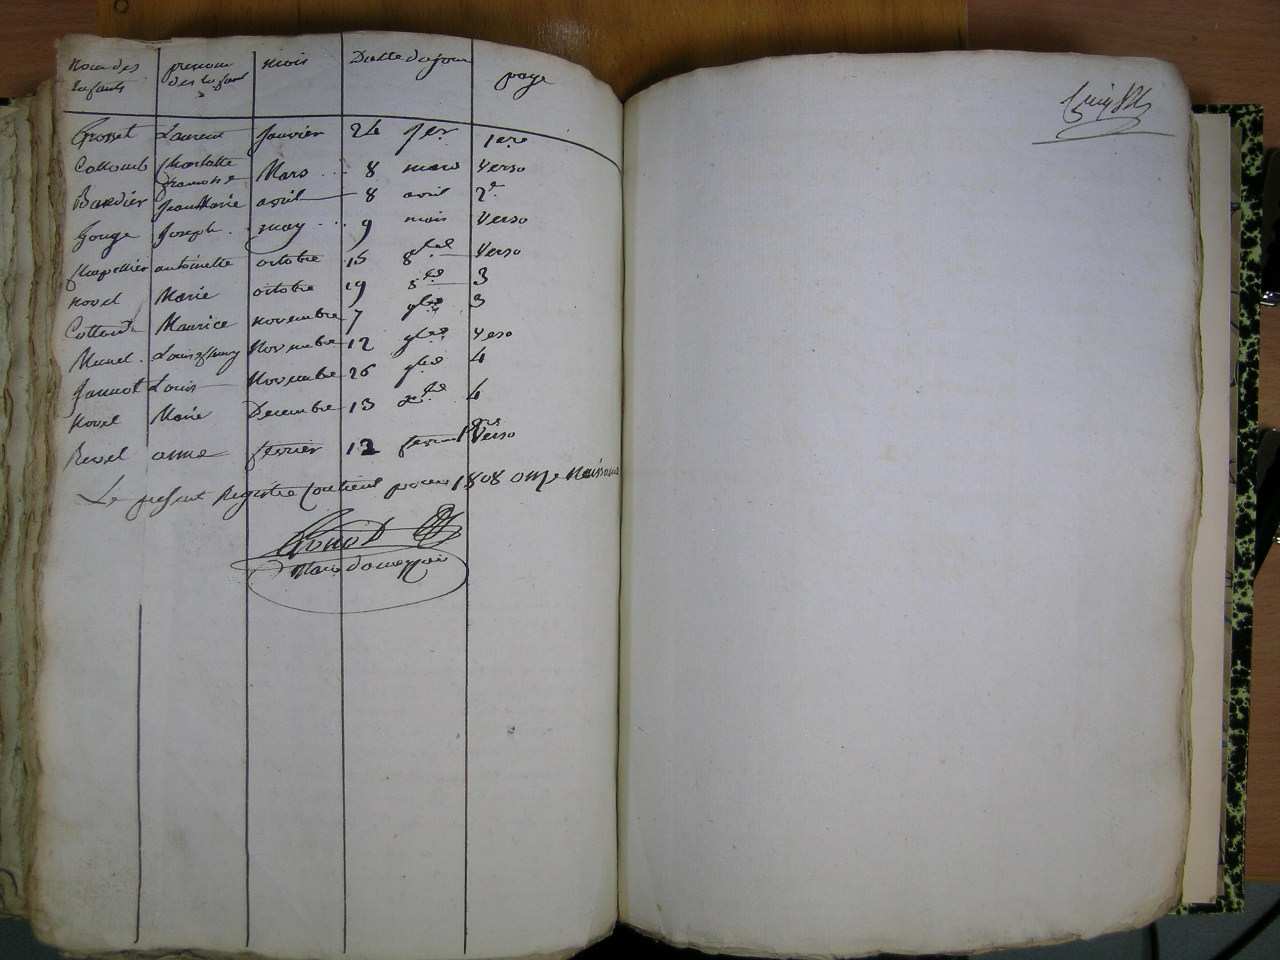 Nom des prenom mois Datte du jour page
Enfants des Enfant
Grosset Laurent Janvier 24 Jer 1ere
Collomb Charlotte
Francoise Mars 8 mars Verso
Bardier Jean Marie avril 8 avril 2e
Gouge Joseph may 9 mais Verso
Chapellier antoinette octobre 15 8bre Verso
Novel Marie octobre 19 8bre 3
Collomb Maurice novembre 7 9bre 3
Munel Louis Novembre 12 9bre Verso
Jannot Louis Novembre 26 9bre 4
Novel Marie Decembre 13 Xbre 4
Revel anne fevrier 12 fevrier 1ere Verso
Le present Registre Contient pour 1808 onze Naissance